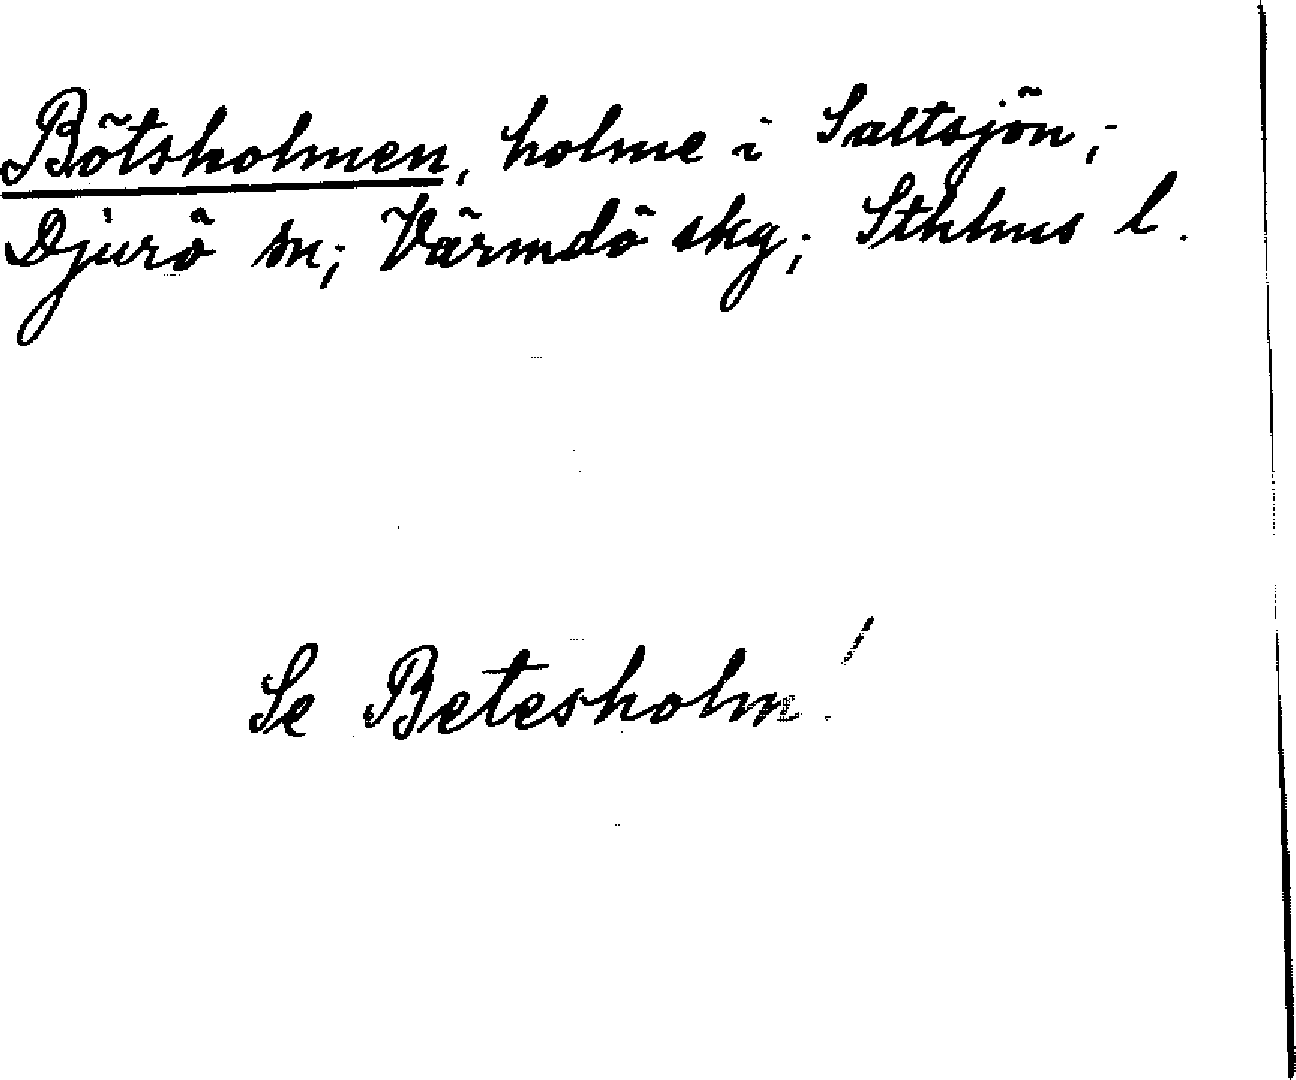 Bötsholmen, holme i Saltsjön;
Djurö sn; Värmdö skg; Sthlms l.
Se Betesholm!